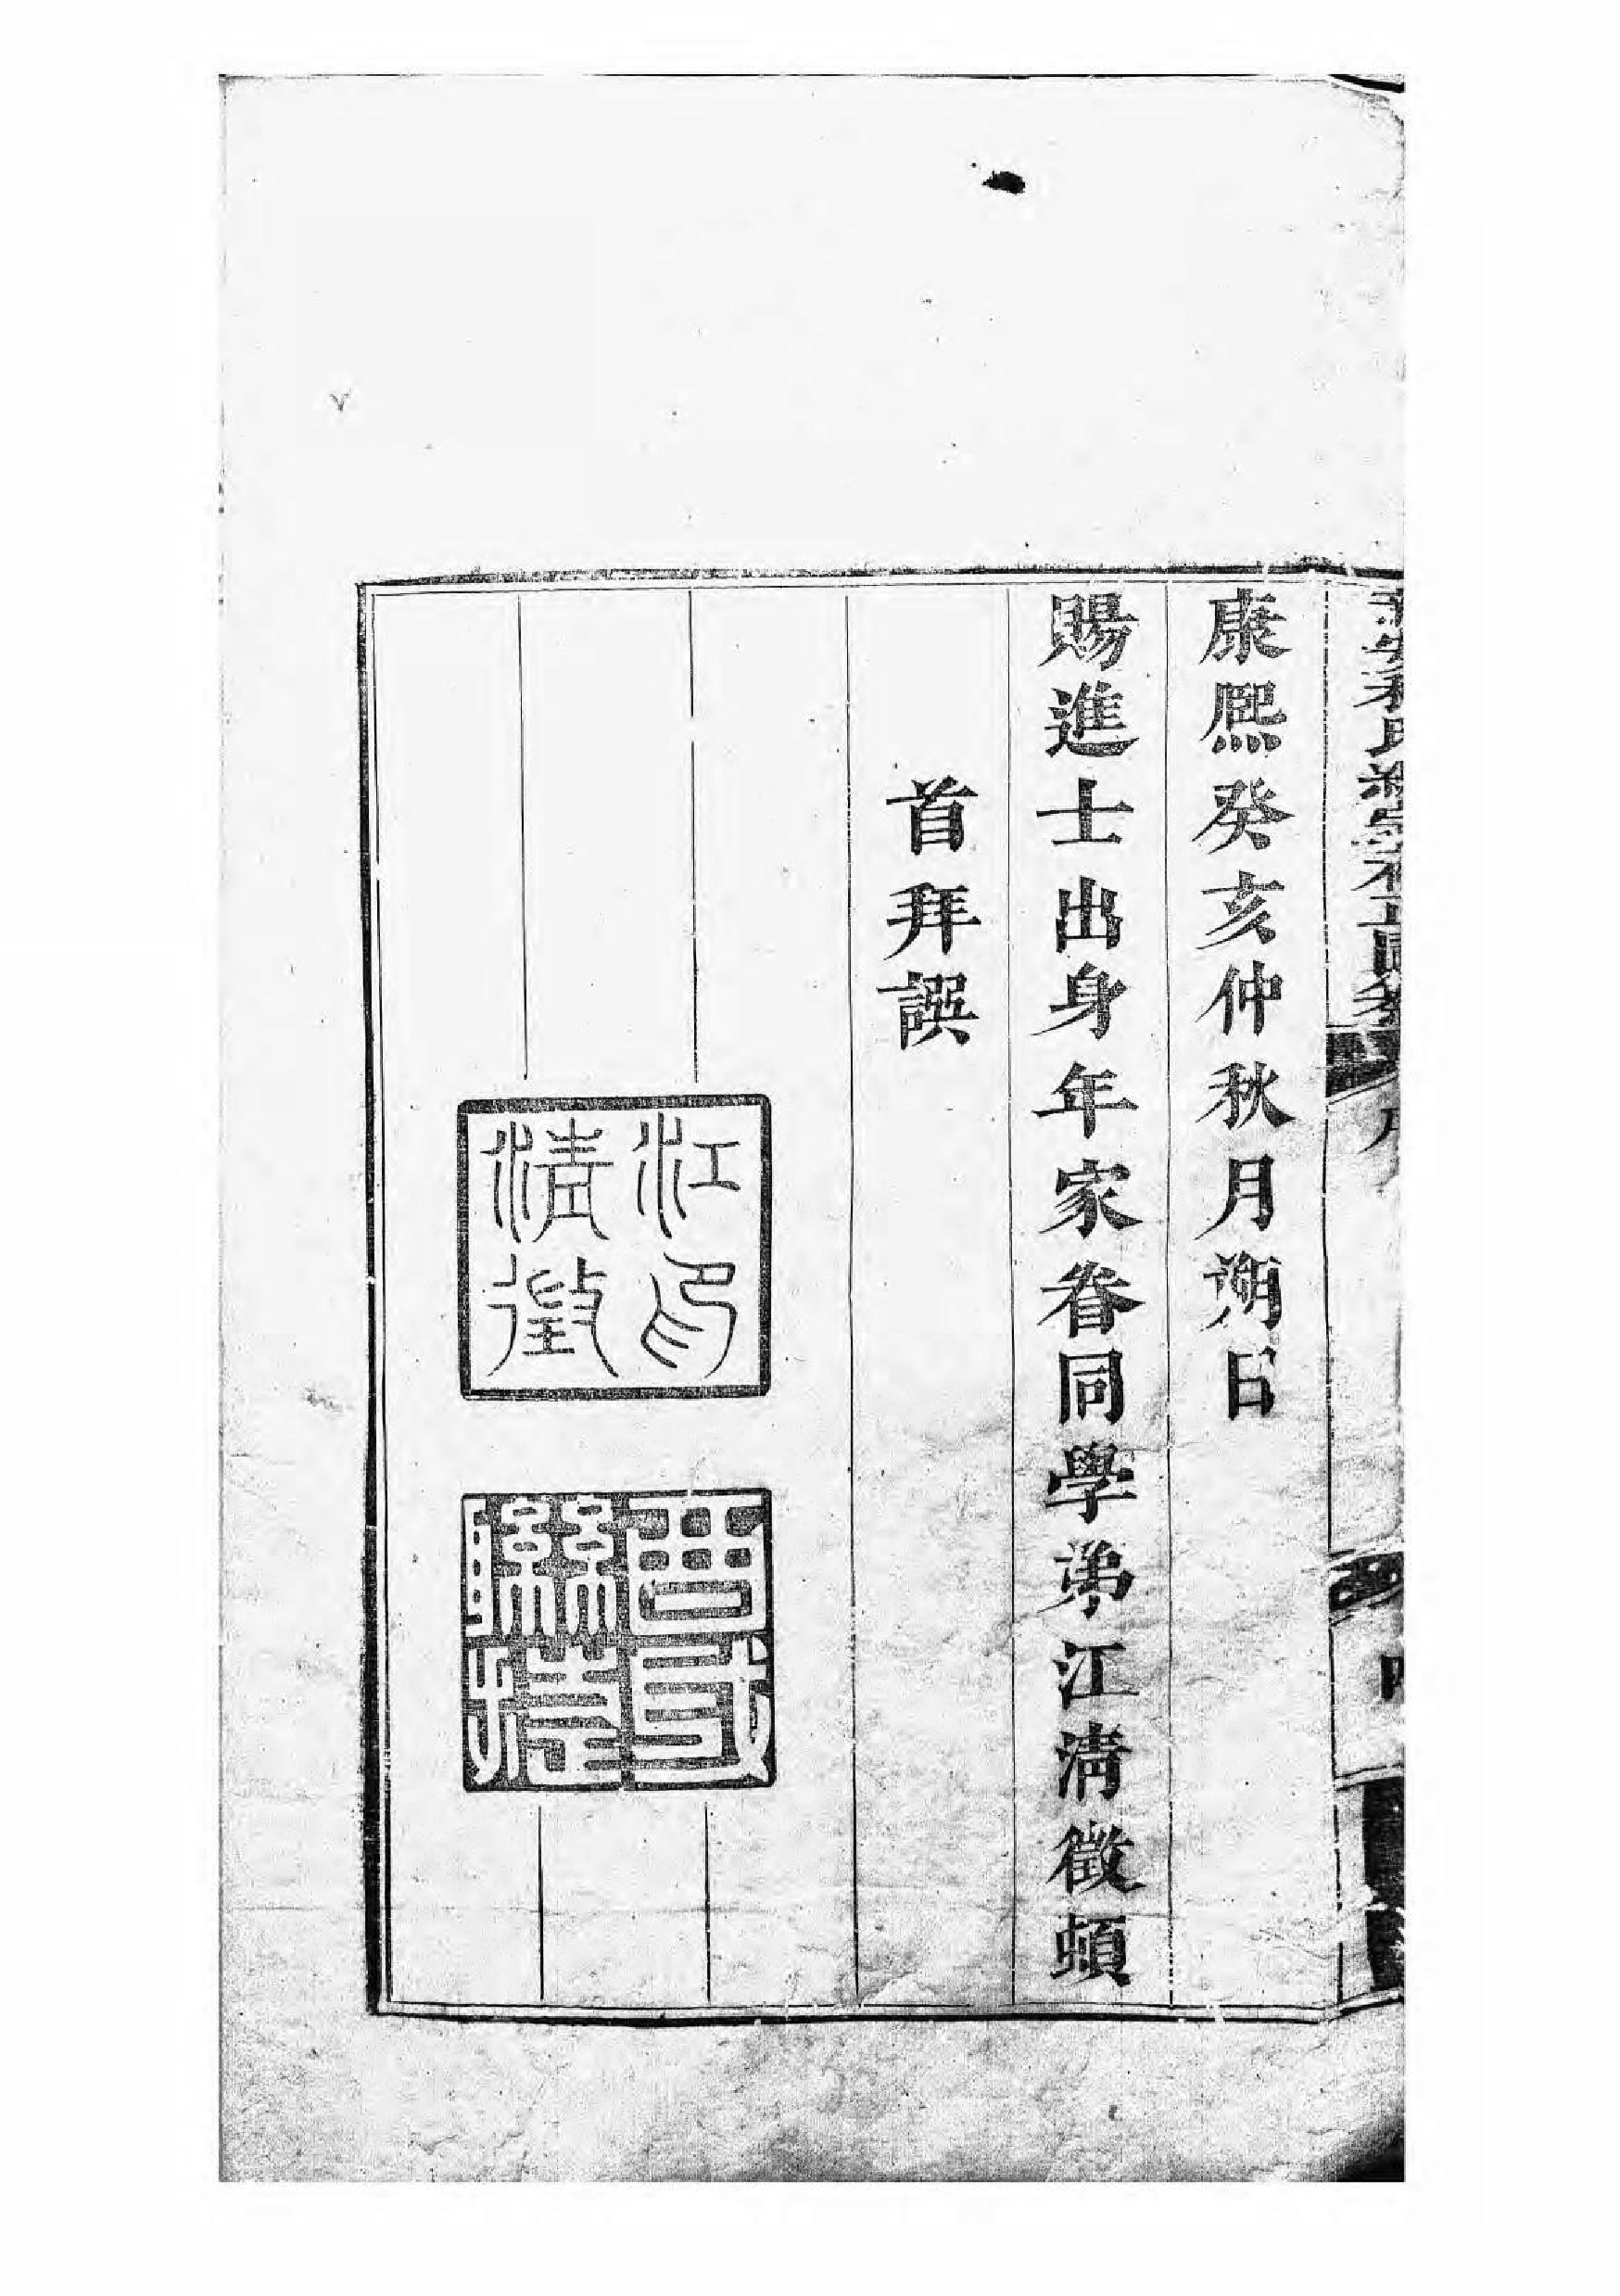 康熙癸亥仲秋月朔日
賜進士出身年家眷同學弟江清徵頓
首拜譔
江清徵印
酉戌聯捷